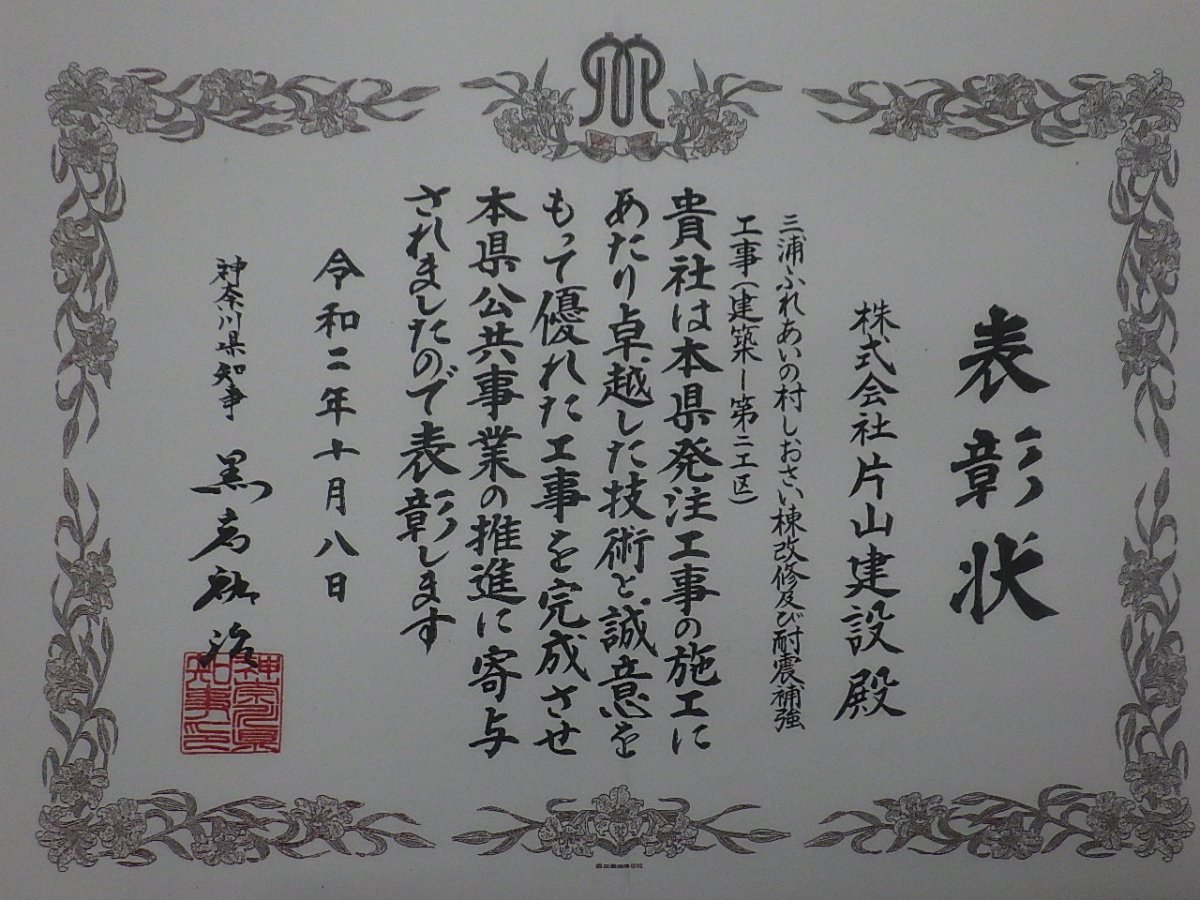 表彰状
株式会社片山建設殿
三浦ふれあいの村しおさい棟改修及び耐震補強
工事(建築ー第二工区)
貴社は本県発注工事の施工に
あたり卓越した技術と誠意を
もって優れた工事を完成させ
本県公共事業の推進に寄与
されましたので表彰します
令和二年十月八日
神奈川県知事 黒岩祐治
神奈川県
知事之印